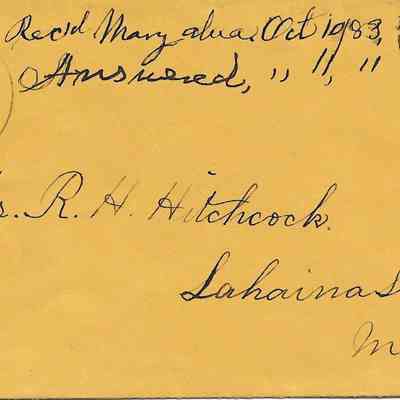 Rec'd Mary alua, Oct 1983,
Answered, " ", "
s. R. H. Hitchcock.
Lahaina
M